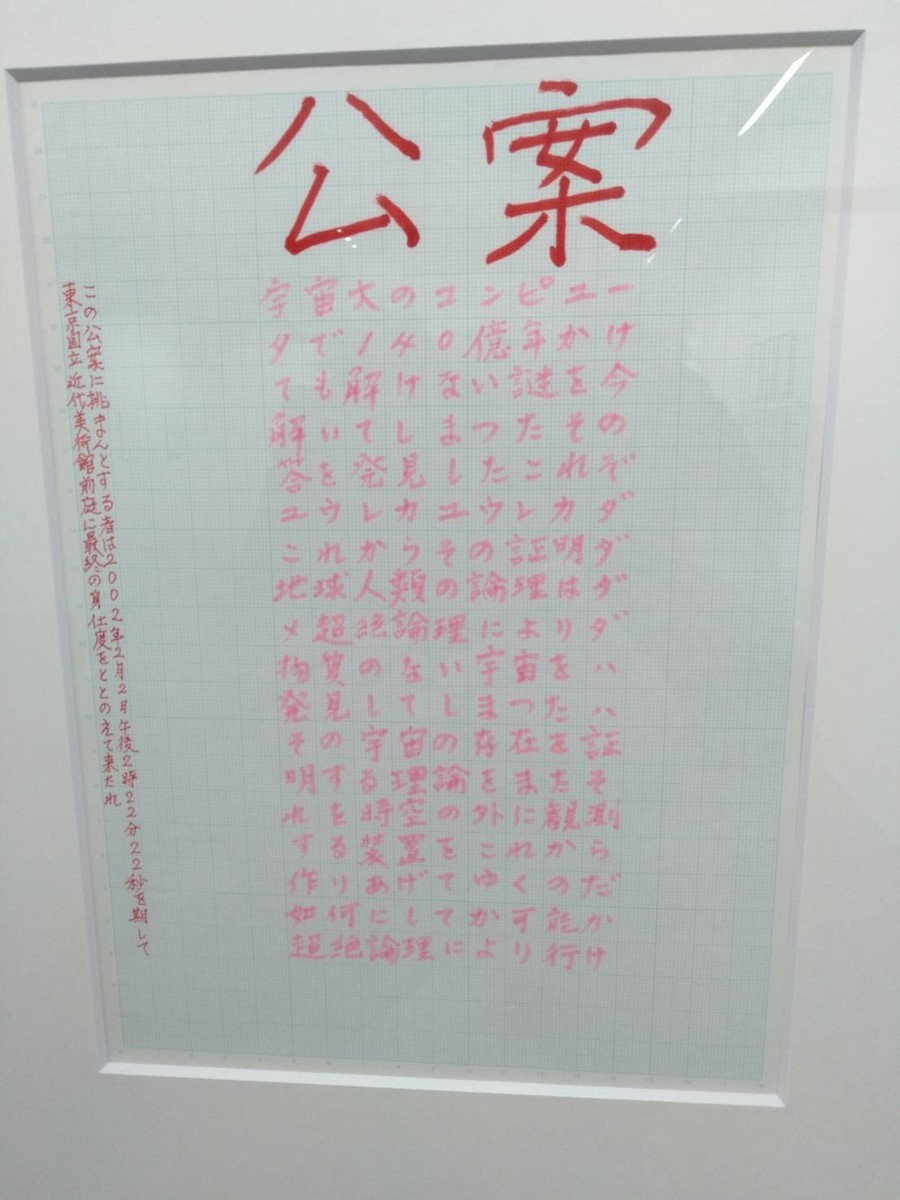 公案
宇宙大のコンピユー
タで140億年かけ
ても解けない謎を今
解いてしまつたその
答を発見したこれぞ
ユウレカユウレカダ
これからその証明ダ
地球人類の論理はダ
メ超絶論理によりダ
物質のない宇宙をハ
発見してしまつたハ
その宇宙の存在を証
明する理論をまたそ
れを時空の外に観測
する装置をこれから
作りあげてゆくのだ
如何にしてか可能か
超絶論理により行け
この公案に挑まんとする者は2002年2月2日午後2時22分22秒を期して
東京国立近代美術館前庭に最終の身仕度をととのえて来たれ